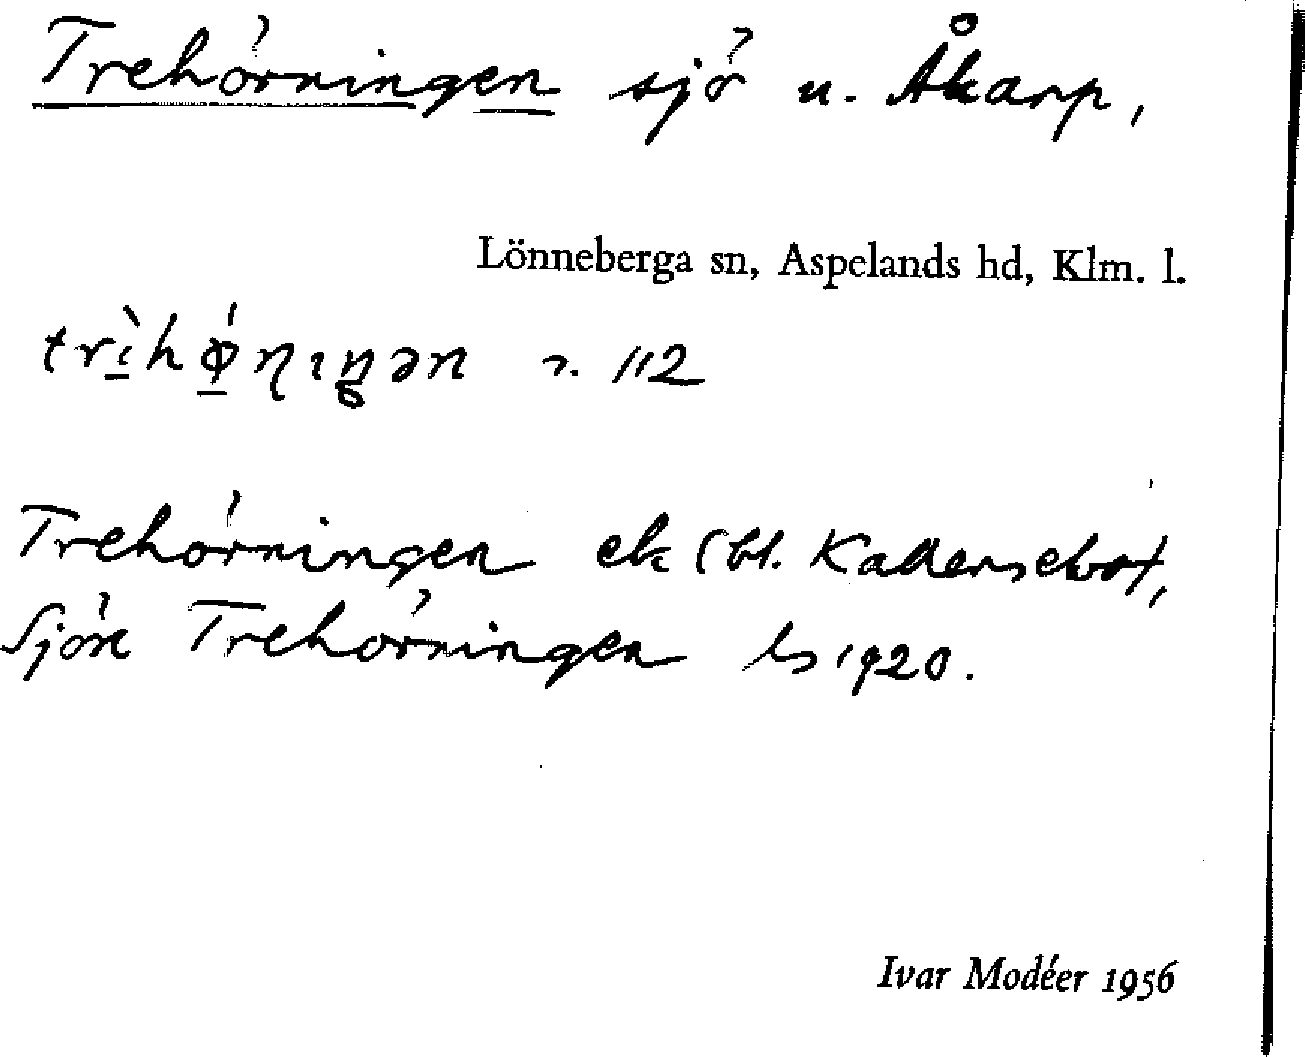 Trehörningen sjö u. Åkarp,
Lönneberga sn, Aspelands hd, Klm. l.
trì̱hǿ̱ɳıŋən 112
Trehörningen ek (bl.
Sjön Trehörningen ls 1920.
Ivar Modéer 1956